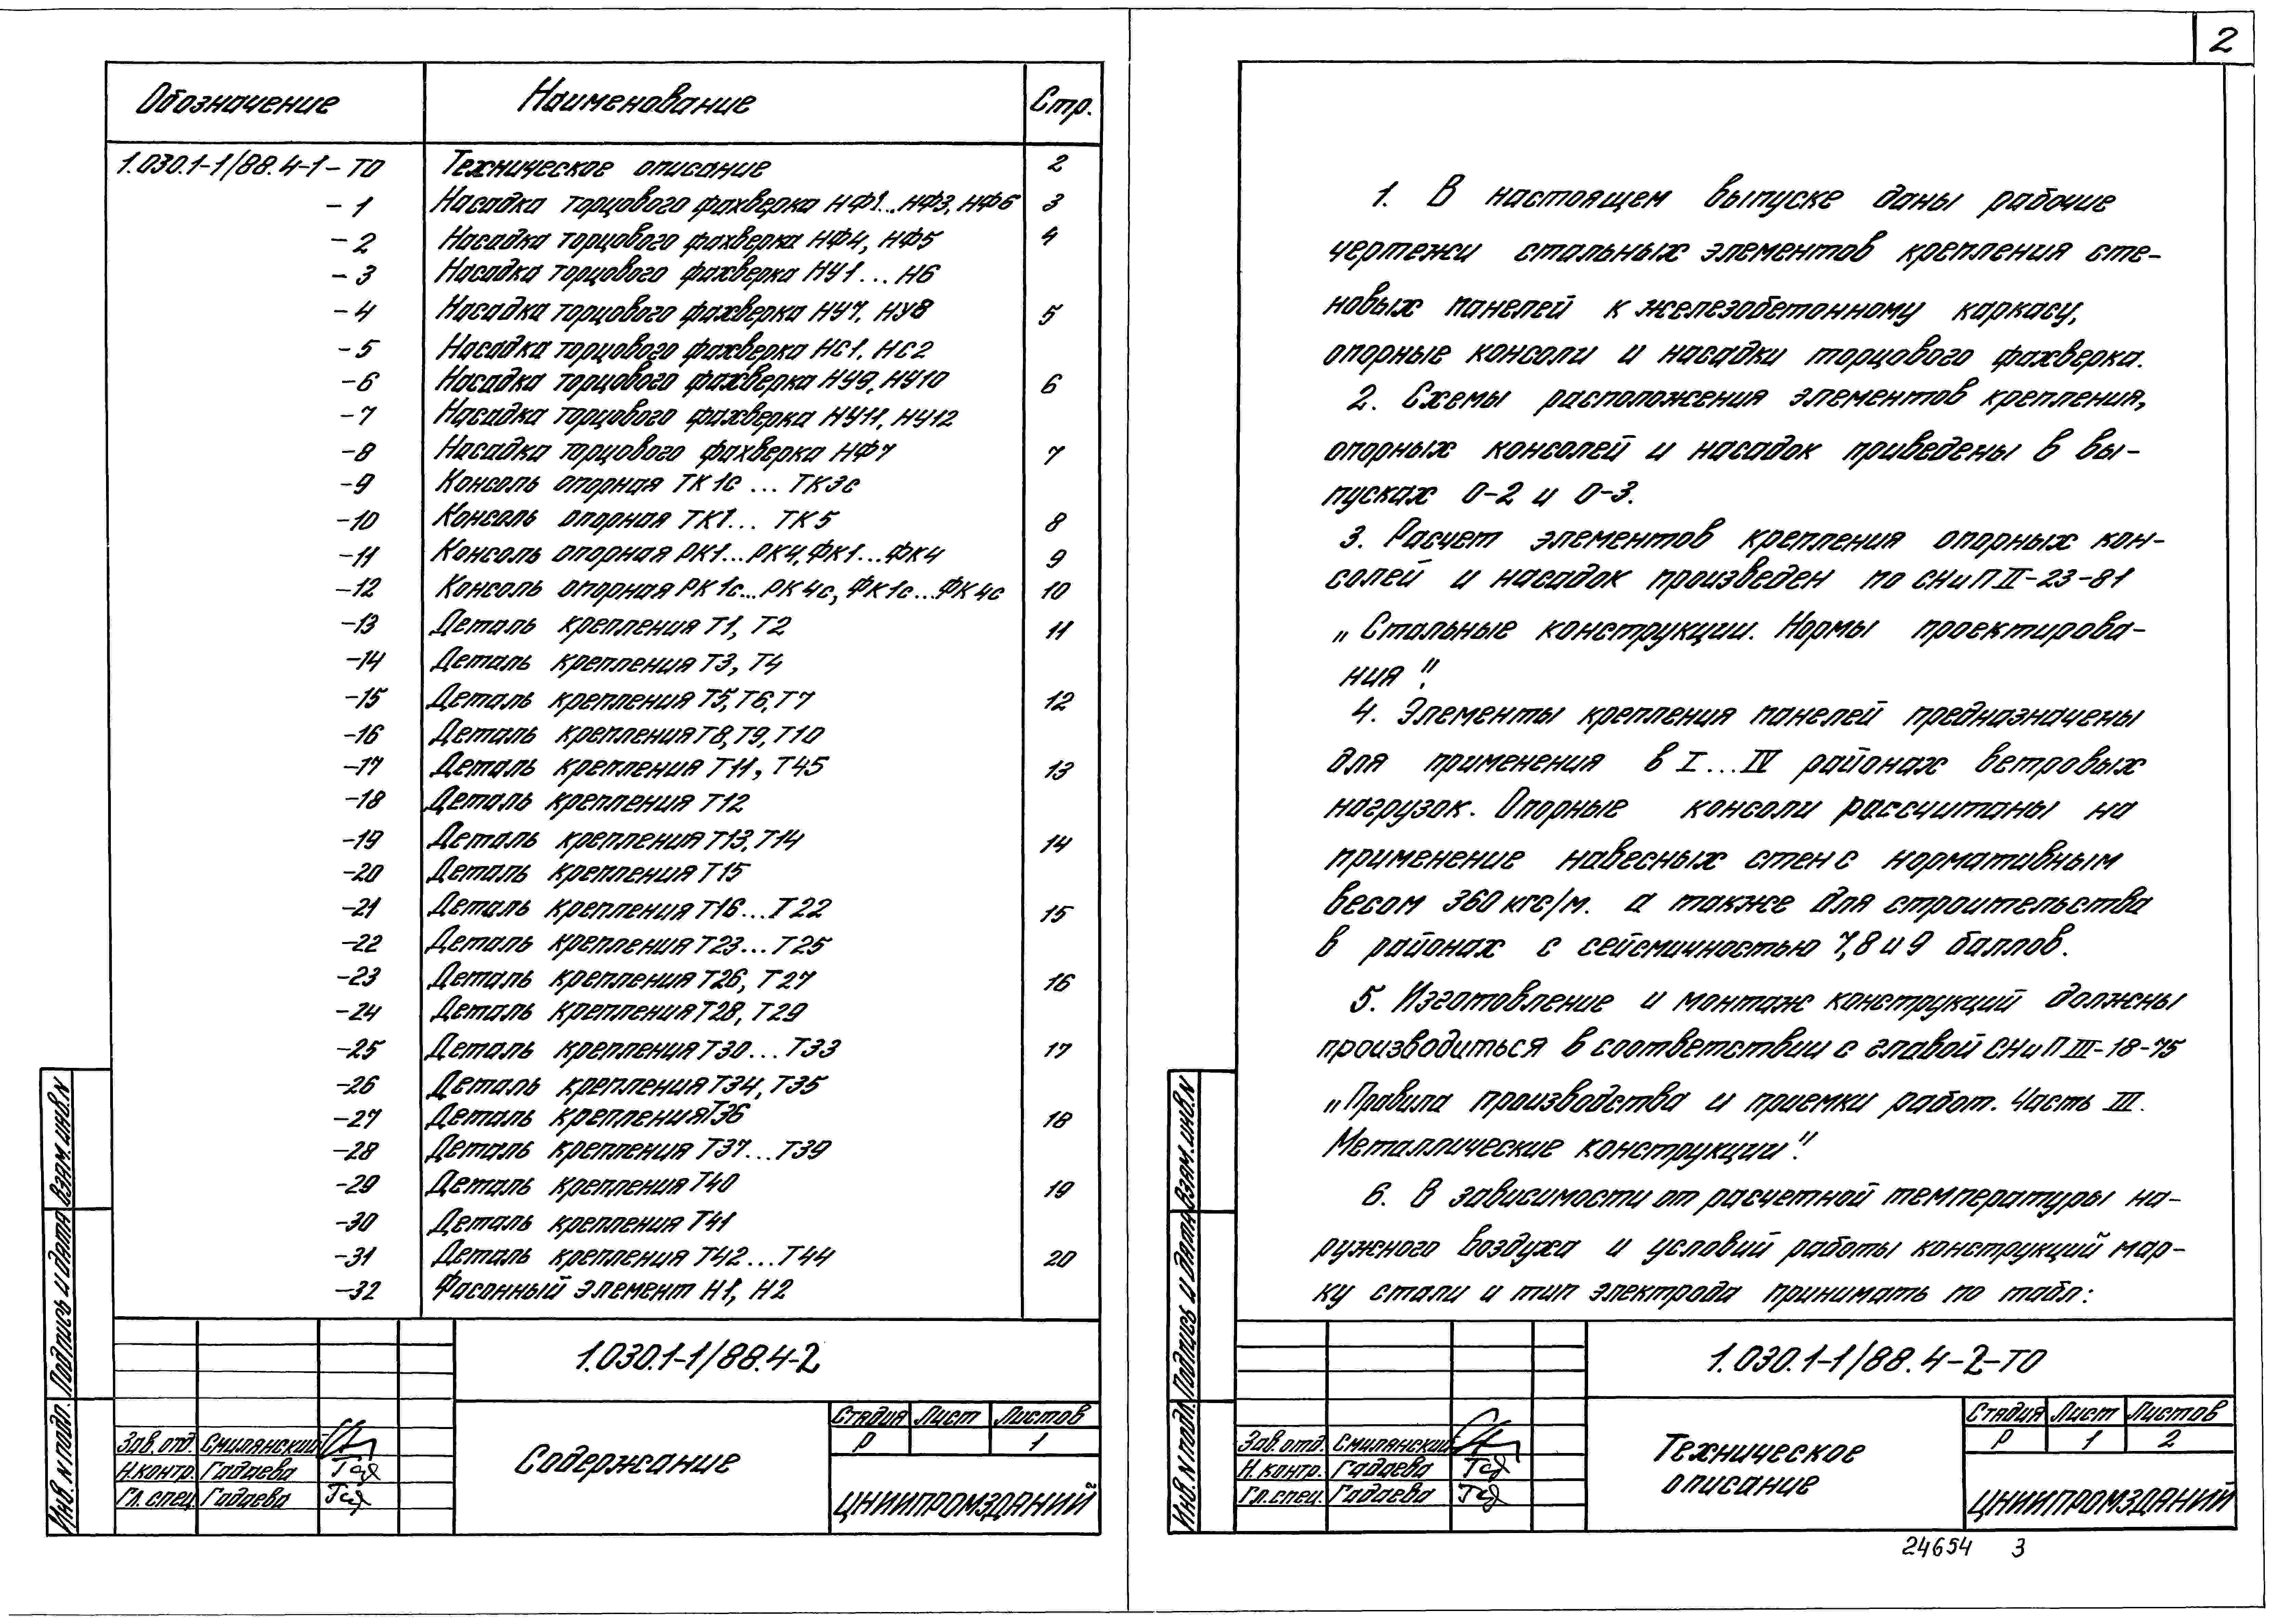 2
Обозначение Наименование Стр.
1.030.1-1/88.4-1-ТО Техническое описание 2
-1 Насадка торцового фахверка НФ1...НФ3, НФ6 3
-2 Насадка торцового фахверка НФ4, НФ5 4
-3 Насадка торцового фахверка НУ1...Н6
-4 Насадка торцового фахверка НУ7, НУ8 5
-5 Насадка торцового фахверка НС1, НС2
-6 Насадка торцового фахверка НУ9, НУ10 6
-7 Насадка торцового фахверка НУ11, НУ12
-8 Насадка торцового фахверка НФ7 7
-9 Консоль опорная ТК1с...ТК3с
-10 Консоль опорная ТК1...ТК5 8
-11 Консоль опорная РК1...РК4, ФК1...ФК4 9
-12 Консоль опорная РК1с...РК4с, ФК1с...ФК4с 10
-13 Деталь крепления Т1, Т2 11
-14 Деталь крепления Т3, Т4
-15 Деталь крепления Т5, Т6, Т7 12
-16 Деталь крепления Т8, Т9, Т10
-17 Деталь крепления Т11, Т45 13
-18 Деталь крепления Т12
-19 Деталь крепления Т13, Т14 14
-20 Деталь крепления Т15
-21 Деталь крепления Т16...Т22 15
-22 Деталь крепления Т23...Т25
-23 Деталь крепления Т26, Т27 16
-24 Деталь крепления Т28, Т29
-25 Деталь крепления Т30...Т33 17
-26 Деталь крепления Т34, Т35
-27 Деталь крепления Т36 18
-28 Деталь крепления Т37...Т39
-29 Деталь крепления Т40 19
-30 Деталь крепления Т41
-31 Деталь крепления Т42...Т44 20
-32 Фасонный элемент Н1, Н2
Взам. инв. N
Подпись и дата
Инв. N подл.
1.030.1-1/88.4-2
Стадия Лист Листов
Р 1
Содержание
Зав. отд. Смилянский
Н. контр. Гадаева Гад
Гл. спец Гадаева Гад
ЦНИИПРОМЗДАНИЙ
1. В настоящем выпуске даны рабочие
чертежи стальных элементов крепления сте-
новых панелей к железобетонному каркасу,
опорные консоли и насадки торцового фахверка.
2. Схемы расположения элементов крепления,
опорных консолей и насадок приведены в вы-
пусках 0-2 и 0-3.
3. Расчет элементов крепления опорных кон-
солей и насадок произведен по СНиП II-23-81
„Стальные конструкции. Нормы проектирова-
ния".
4. Элементы крепления панелей предназначены
для применения в I...IV районах ветровых
нагрузок. Опорные консоли рассчитаны на
применение навесных стен с нормативным
весом 360 кгс/м. а также для строительства
в районах с сейсмичностью 7,8 и 9 баллов.
5. Изготовление и монтаж конструкций должны
производиться в соответствии с главой СНиП III-18-75
„Правила производства и приемки работ. Часть III.
Металлические конструкции".
6. В зависимости от расчетной температуры на-
ружного воздуха и условий работы конструкций мар-
ку стали и тип электрода принимать по табл:
Взам. инв. N
Подпись и дата
Инв. N подл.
1.030.1-1/88.4-2-ТО
Стадия Лист Листов
Р 1 2
Техническое
описание
Зав. отд. Смилянский
Н. контр. Гадаева Гад
Гл. спец. Гадаева Гад
ЦНИИПРОМЗДАНИЙ
24654 3